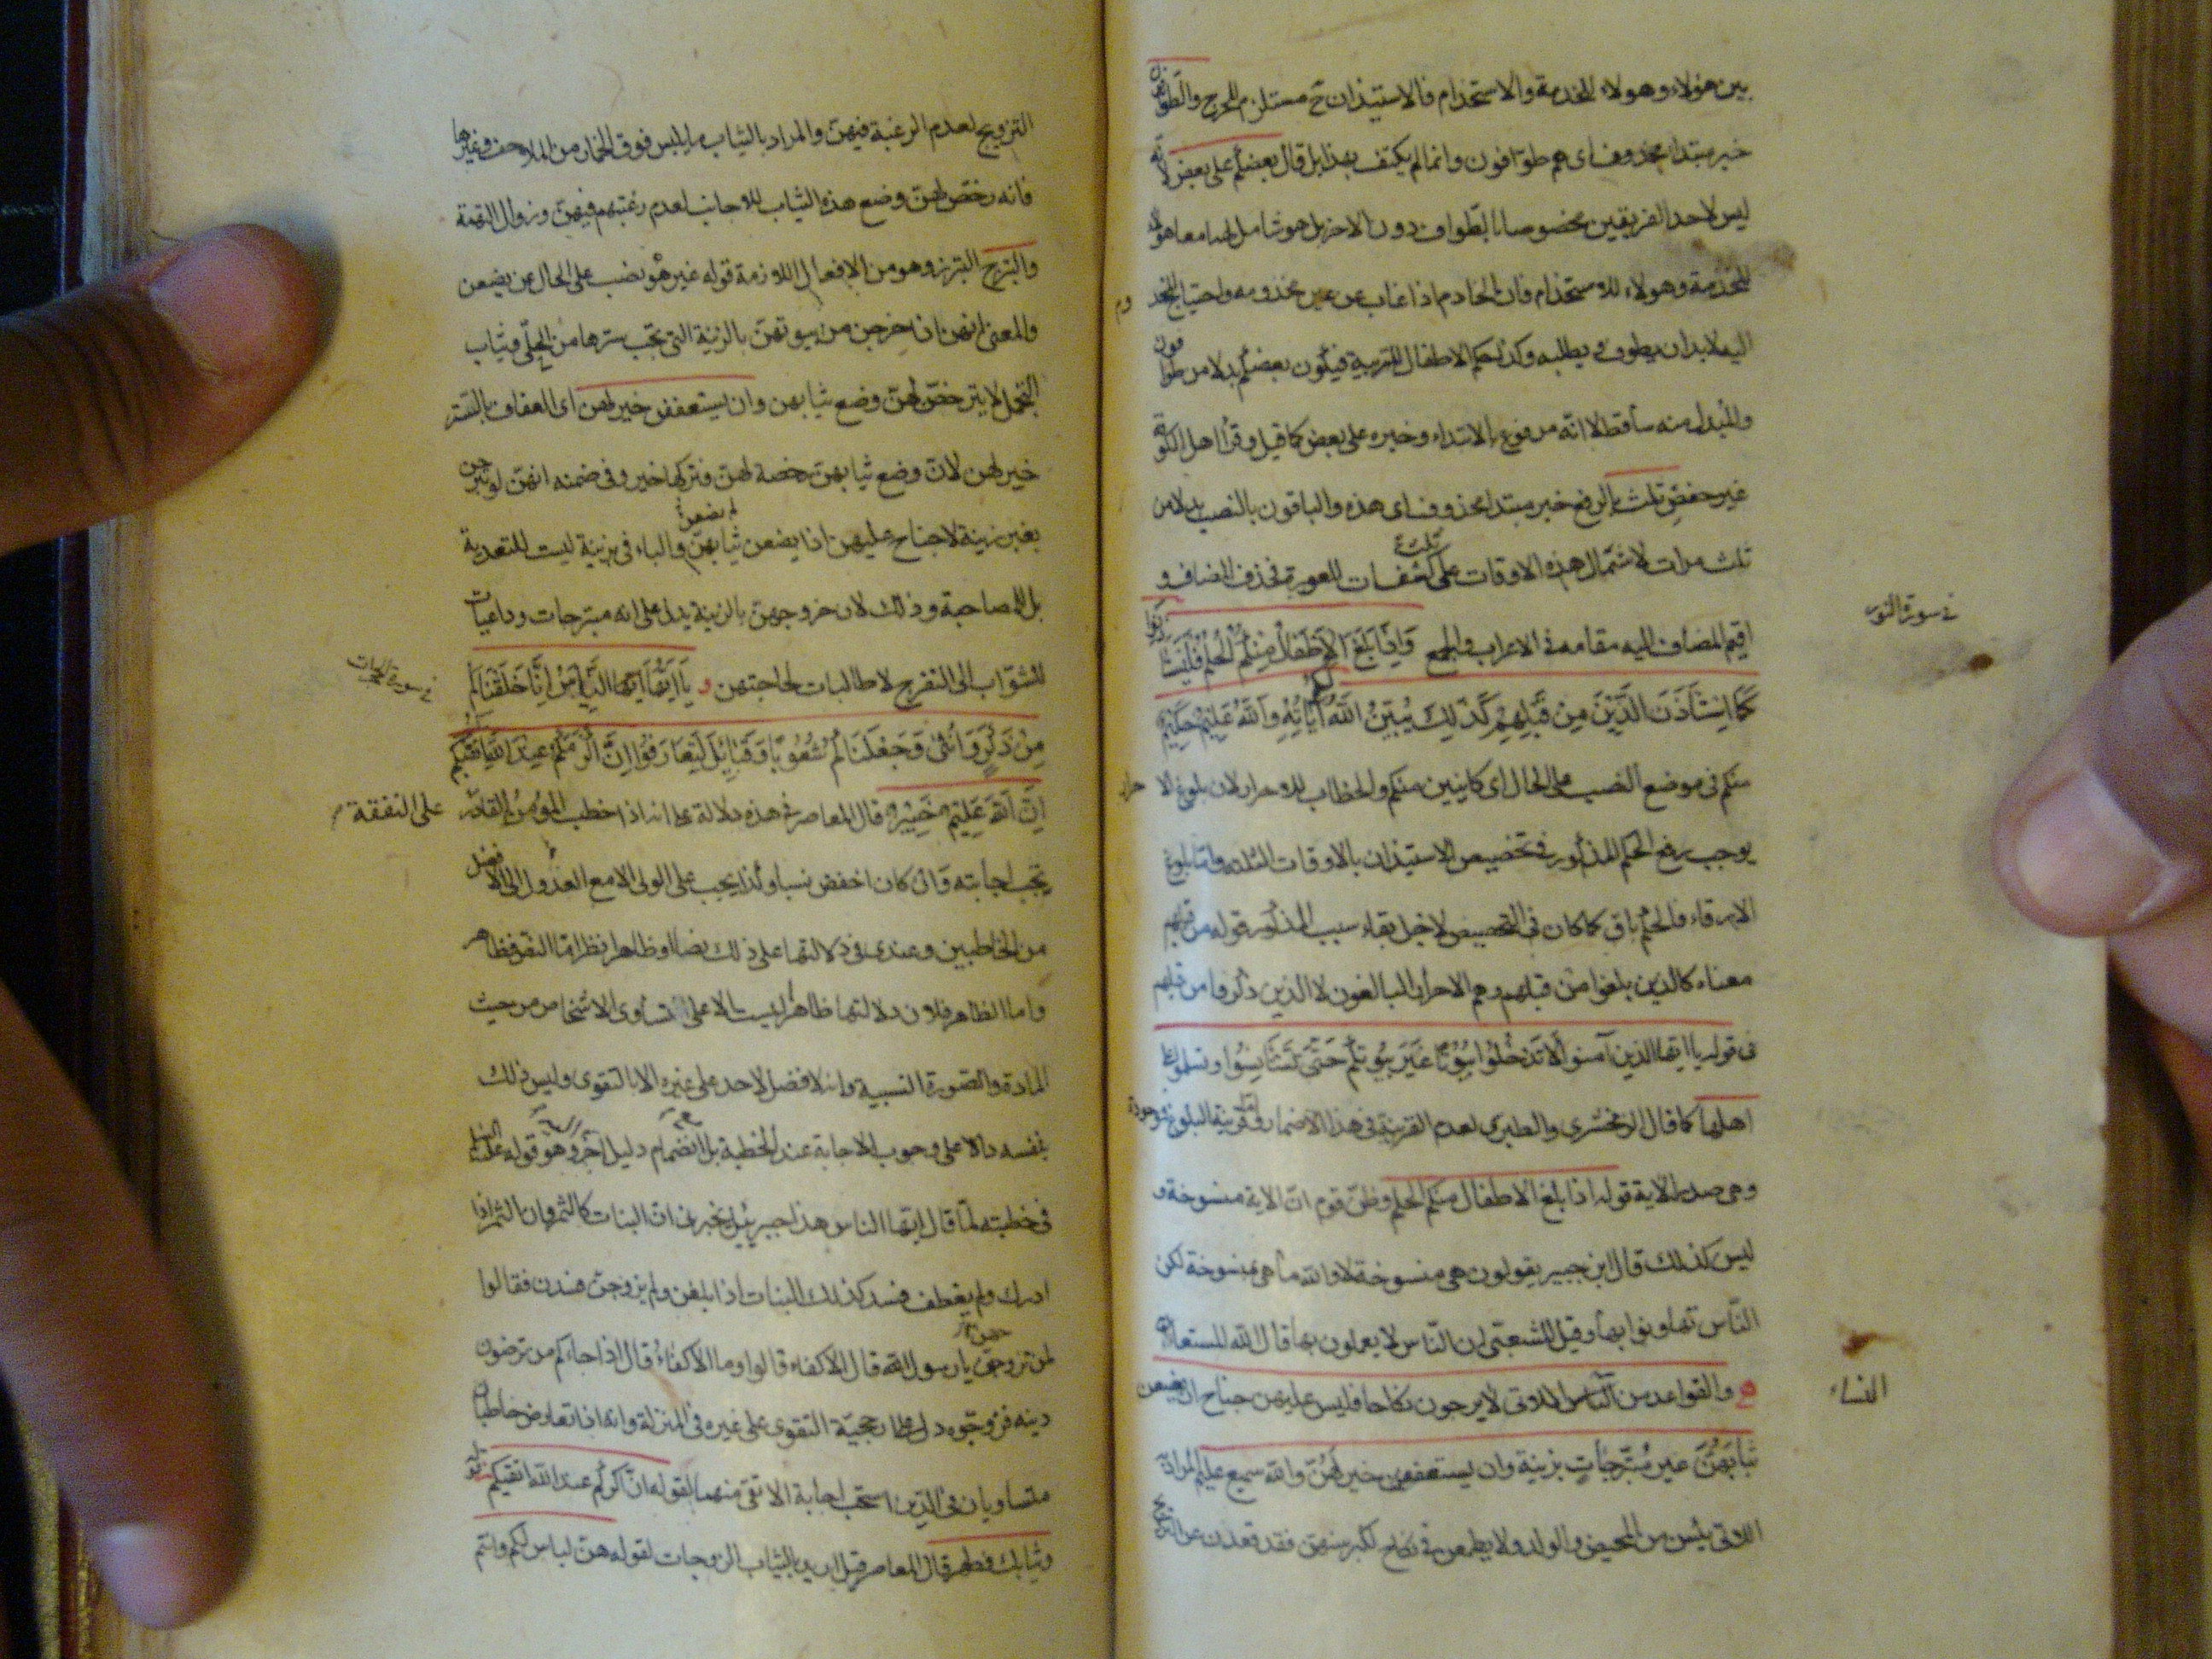 بين هؤلاء وهولاء للخدمة والاستخدام فالاستيذان ح مستلزم للحرج والطوافون
خبر مبتداء محذوف اى هم طوافون وانما لم يكتف بهذا بل قال بعضكم على بعض لانه
ليس لاحد الفريقين مخصوصا بالطواف دون الاخر بل هو شامل لهما معا هولاء
للخدمة وهولاء للاستخدام فان الخادم اذا غاب عن عين مخدومه واحتياج المخدوم
اليه لابد ان يطوف و يطلبه وكذلك حكم الاطفال للتربية فيكون بعضكم بدلا من طوافون
والمبدل منه ساقط لا انه مرفوع بالابتداء وخبره على بعض كما قيل وقرأ اهل الكوفة
غير حفص ثلث بالرفع خبر مبتدا محذوف اى هذه والباقون بالنصب بدلا من
ثلث مرات لاشتمال هذه الاوقات على ثلث كشفات للعورة فحذف المضاف و
اقيم المضاف اليه مقامه فى الاعراب والجمع وَاِذَا بَلَغَ الْاَطْفَالُ مِنْكُمُ الْحُلُمَ فَلْيَسْتَأذِنُوا
فى سورة النور
كَمَا اسْتَأذَنَ الَّذِينَ مِنْ قَبْلِهِمْ كَذَلِكَ يُبَيِّنُ اللّهُ لكم آيَاتِهِ وَاللّهُ عَلِيمٌ حَكِيمٌ
منكم فى موضع النصب على الحال اى كاينين منكم والخطاب للاحرار لان بلوغ الاحرار
يوجب رفع الحكم المذكور فى تخصيص الاستيذان بالاوقات الثلثه واما بلوغ
الارقاء فالحكم باق كما كان فى التخصيص لاجل بقاء سبب المذكور قوله من قبلهم
معناه كالذين بلغوا من قبلهم وهم الاحرار البالغون لا الذين ذكروا من قبلهم
فى قوله يا ايها الذين آمنوا لا تَدْخُلُوا بُيُوتًا غَيْرَ بُيُوتِكُمْ حَتَّى تَسْتَأنِسُوا وتسلموا على
اهلها كما قال الزمخشرى والطبرى لعدم القرينة فى هذا الاضمار وقرينة البلوغ موجودة
وهى صدر الاية قوله اذا بلغ الاطفال منكم الحلم وظن قوم ان الاية منسوخة و
ليس كذلك قال ابن جبير يقولون هى منسوخة لا والله ما هى بمنسوخة لكن
النّاس تهاونوا بها وقيل للشعبى ان النّاس لا يعملون بها قال الله المستعان
والقواعد من النساء اللاتى لا يرجون نكاحا فليس عليهن جناح ان يضعن
النساء
ثيابَهُنَّ غير مُتبَرِّجَاتٍ بزينة وان يستعففن خير لهُنّ والله سميع عليم المراد
اللاتى يئسن من المحيض والولد ولا يطمعن فى نكاح لكبر سنهن فقد قعدن عن التزويج
التزويج لعدم الرغبة فيهن والمراد بالثياب ما يلبس فوق الخمار من الملاحف وغيرها
فانه رخص لهن وضع هذه الثياب للاجانب لعدم رغبتهم فيهن وزوال التهمة
والتبرج التبرز وهو من الافعال اللازمة قوله غير هو نصب على الحال عن يضعن
والمعنى انهن ان خرجن من بيوتهن بالزينة التى يجب سترها من الحلى وثياب
التجمل لا يترخص لهن وضع ثيابهن وان يستعففن خير لهن اى العفاف بالستر
خير لهن لان وضع ثيابهن رخصة لهن فتركها خير وفى ضمنه انهن لو تبرجن
بغير زينة لا جناح عليهن اذا لم يضعن ثيابهن والباء فى بزينة ليست للتعدية
بل للمصاحبة وذلك لان خروجهن بالزينة يدل على انه متبرجات وداعيات
للشواب الى التفرج لا طالبات لحاجتهن و يَا اَيُّهَا النَّاسُ اِنَّا خَلَقْنَاكُمْ
فى سورة الحجرات
مِنْ ذَكَرٍ وَاُنْثَى وَجَعَلْنَاكُمْ شُعُوبًا وَقَبَائِلَ لِتَعَارَفُوا اِنَّ اَكْرَمَكُمْ عِنْدَ اللّهِ اَتْقَيكُمْ
اِنَّ اللّهَ عَلِيمٌ خَبِيرٌ قال المعاصر فى هذه دلالة على انه اذا خطب المؤمن القادر على النفقة
يجب اجابته وان كان اخفض نسبا ولذا يجب على الولى الا مع العدول الى الافضل
من الخاطبين وعندى فى دلالتها على ذلك نصا او ظاهرا نظر اما النص فظاهر
واما الظاهر فلان دلالتها ظاهرا ليست الا على تساوى الاشخاص من حيث
المادة والصورة النسبية وان لا فضل لاحد على غيره الا بالتقوى وليس ذلك
بنفسه دالا على وجوب الاجابة عند الخطبة بل انضمام دليل آخر وهو قوله
فى خطبته لما قال ايها الناس هذا جبرئيل يخبرنى ان البنات كالثمر وان الثمر اذا
ادرك ولم يقطف فسد كذلك البنات اذا بلغن ولم يزوجن فسدن فقالوا
لمن نزوجهن يا رسول الله قال الاكفاء قالوا وما الاكفاء قال اذا جاءكم من ترضون
دينه فزوجوه دل على ارجحية التقوى على غيره فى المنزلة وانه اذا تعارض خاطبان
متساويان فى الدين استحب اجابة الاتقى منهما لقوله ان اكرمكم عند الله اتقيكم
وثيابك فطهر قال المعاصر قيل اريد بالثياب الزوجات لقوله هن لباس لكم وانتم